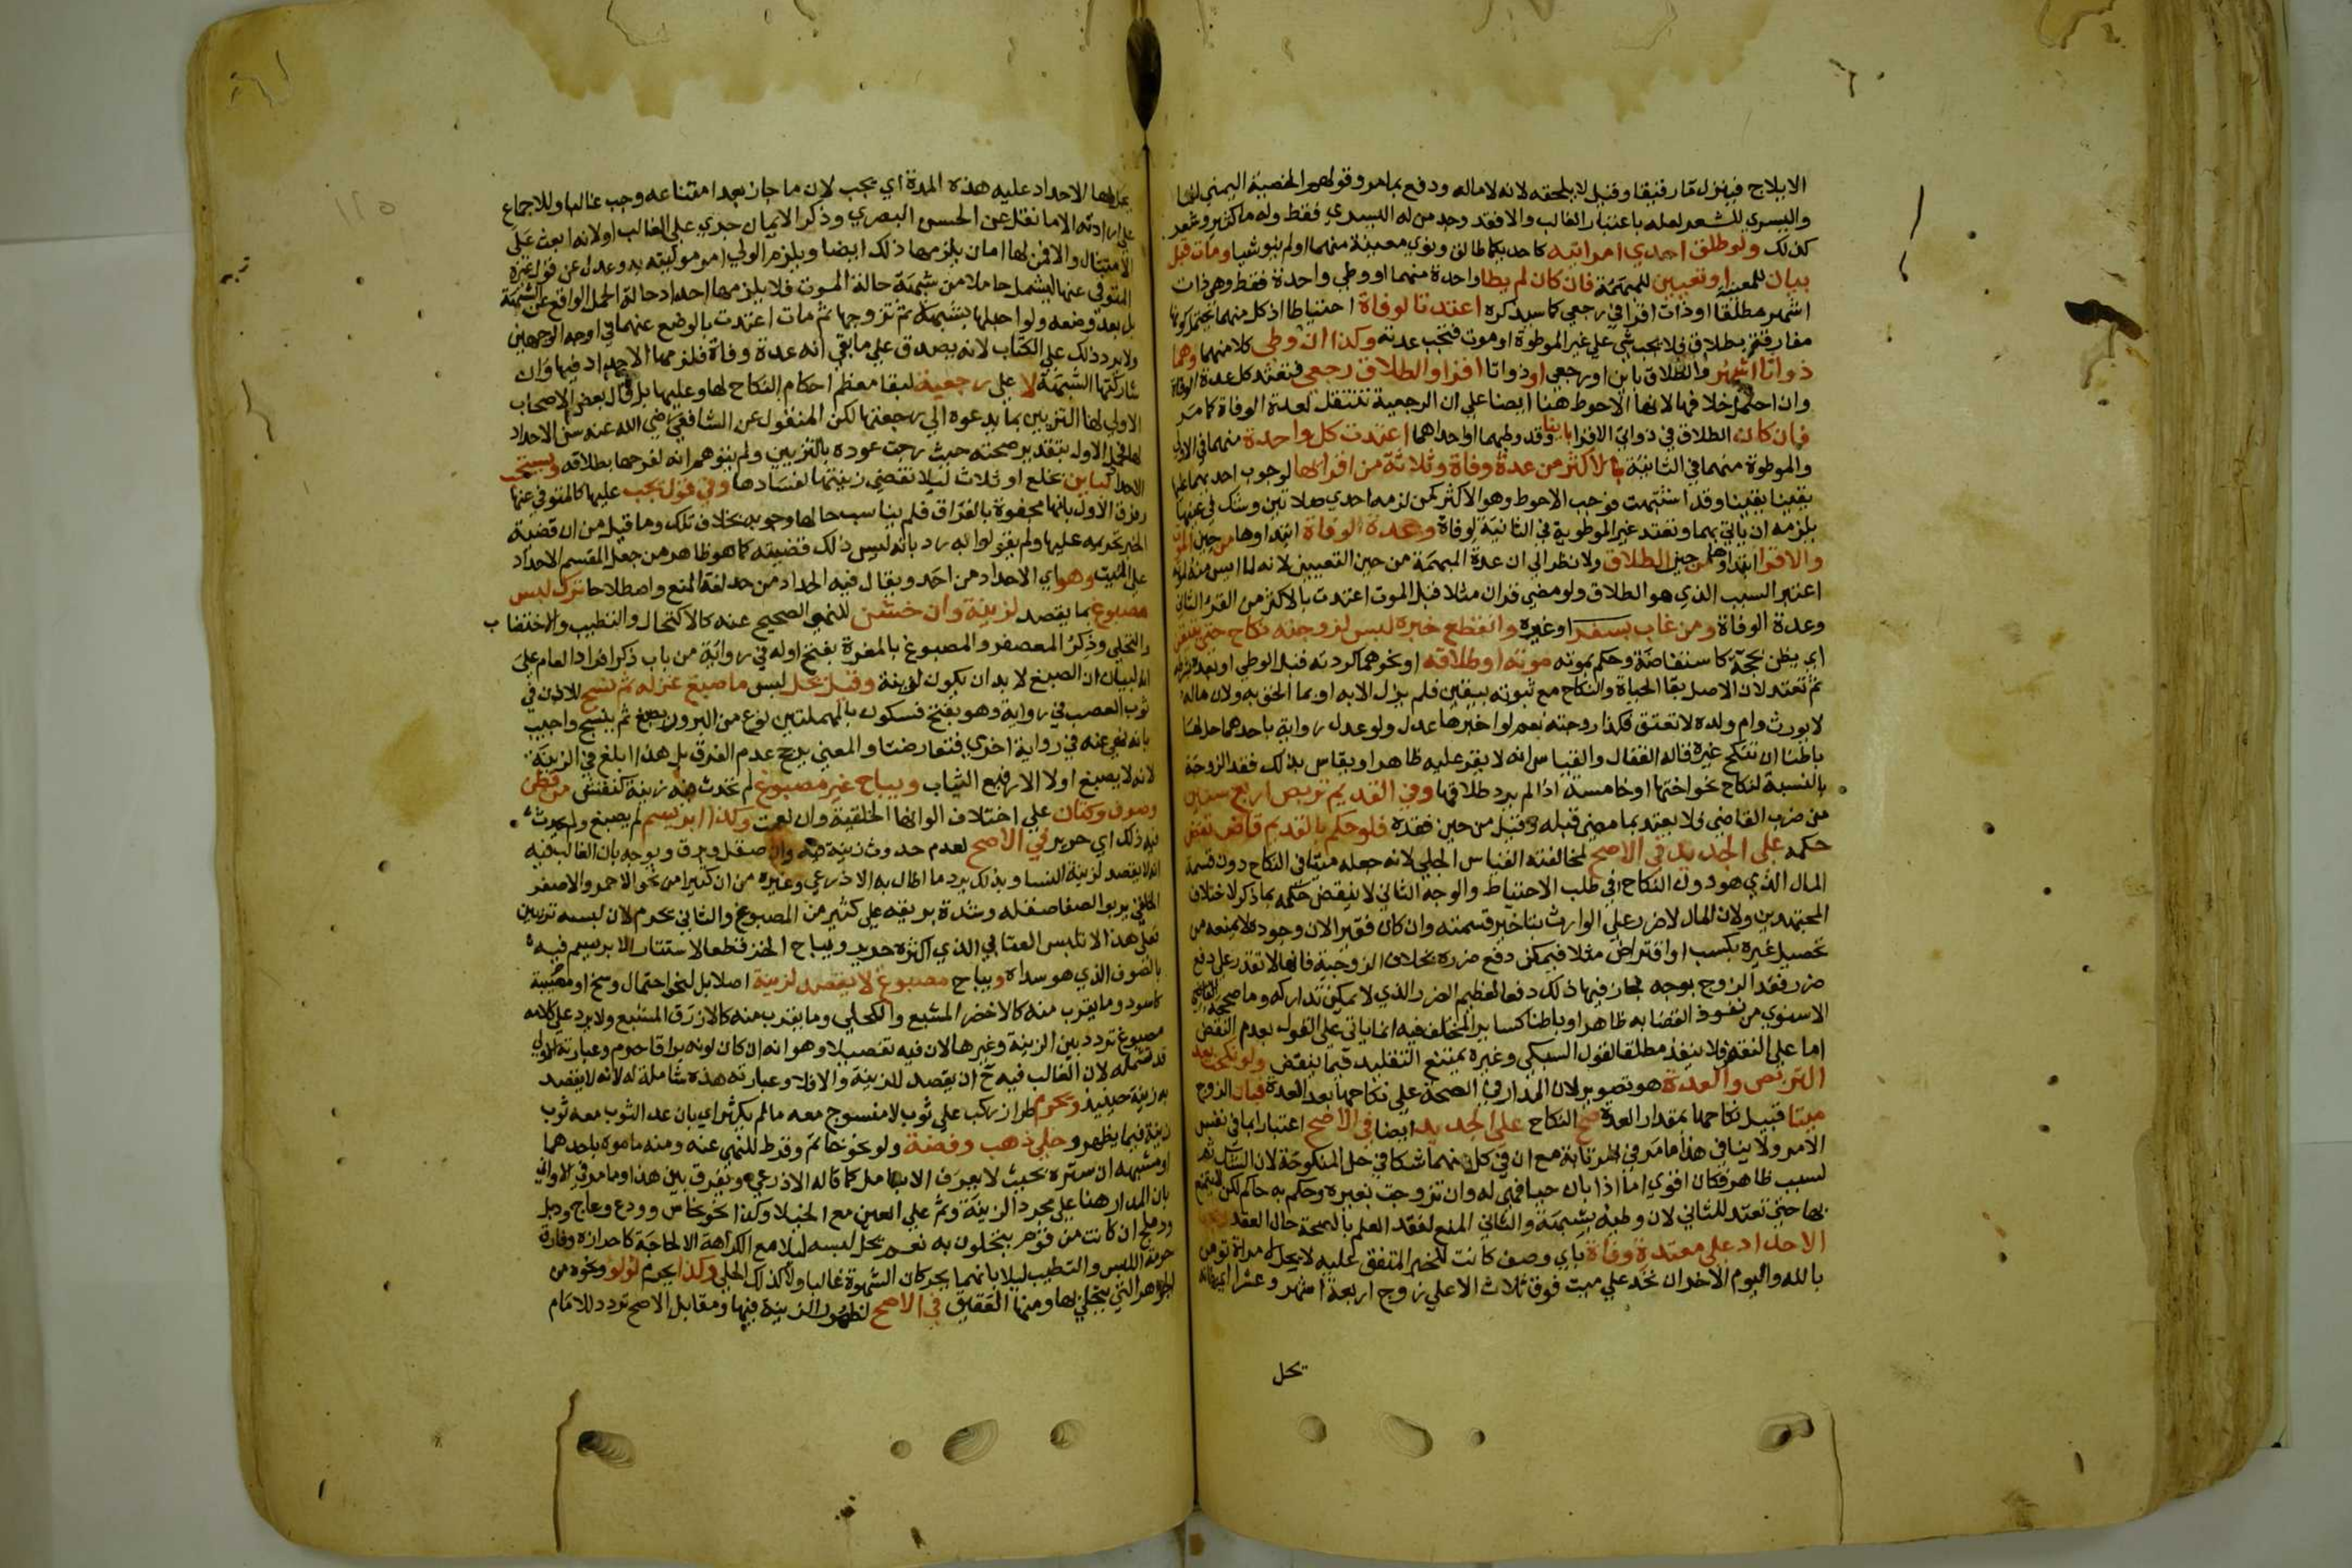 الايلاج فينزل مآء رقيقا وقيل لا يلحقه لانه لا ماله ودفع بما مر وقولهم الخصية اليمنى للمآ
واليسري للشعر لعله باعتبار الغالب والا فقد وجد من له اليسرى فقط وله ما كثير وشعر
كذلك ولو طلق احدي امراتيه كاحديكما طالق ونوي معينة منهما او لم ينو شيا ومات قبل
بيان للمعينة او تعيين للمبهمة فان كان لم يطا واحدة منهما او وطي واحدة فقط وهي ذات
اشهر مطلقا او ذات اقرا في رجعي كما سيذكره اعتدتا لوفاة احتياطا اذ كل منهما يحتمل كونها
مفارقة بطلاق فلا يجب شي علي غير الموطوة او موت فتجب عدته وكذا ان وطي كلا منهما وهما
ذواتا اشهر والطلاق باين او رجعي او ذواتا اقرا والطلاق رجعي فتعتد كل عدة الوفاة
وان احتمل خلافها لانها الاحوط هنا ايضا علي ان الرجعية تنتقل لعدة الوفاة كما مر
فان كان الطلاق في ذواتي الاقرا باينا وقد وطيهما او احداهما اعتدت كل واحدة منهما في الاولي
والموطوة منهما في الثانية بالاكثر من عدة وفاة وثلاثة من اقرائها لوجوب احديهما عليها
يقينا وقد اشتبهت فوجب الاحوط وهو الاكثر كمن لزمه احدي صلاتين وشك في عينها
يلزمه ان ياتي بهما وتعتد غير الموطوة في الثانية لوفاة وعدة الوفاة ابتداوها من حين الموت
والاقرا ابتداوها من حين الطلاق ولا نظر الي ان عدة المبهمة من حين التعيين لانه لما ايس منه لموته
اعتبر السبب الذي هو الطلاق ولو مضي قران مثلا قبل الموت اعتدت بالاكثر من القرء الثالث
وعدة الوفاة ومن غاب بسفر او غيره وانقطع خبره ليس لزوجته نكاح حتى يتيقن
اي يظن بحجة كاستفاضة وحكم بموته موته او طلاقه او نحوهما كردته قبل الوطي او بعده بشرطه
ثم تعتد لان الاصل بقا الحياة والنكاح مع ثبوته بيقين فلم يزل الا به او بما الحق به ولان ماله
لا يورث وام ولده لا تعتق فكذا زوجته نعم لو اخبرها عدل ولو عدل رواية باحدهما حل لها
باطنا ان تنكح غيره قاله القفال والقياس انه لا يقر عليه ظاهرا ويقاس بذلك فقد الزوجة
بالنسبة لنكاح نحو اختها او خامسة اذا لم يرد طلاقها وفي القديم تربص اربع سنين
من ضرب القاضي فلا يعتد بما مضي قبله وقيل من حين فقده فلو حكم بالقديم قاض نقض
حكمه على الجديد في الاصح لمخالفته القياس الجلي لانه جعله ميتا في النكاح دون قسمة
المال الذي هو دون النكاح في طلب الاحتياط والوجه الثاني لا ينقض حكمه بما ذكر لاختلاف
المجتهدين ولان المال لا ضرر علي الوارث بتاخير قسمته وان كان فقيرا لان وجوده لا يمنعه من
تحصيل غيره بكسب او اقتراض مثلا فيمكن دفع ضرره بخلاف الزوجية فانها لا تقدر علي دفع
ضرر فقد الزوج بوجه فجاز فيها ذلك دفعا لعظيم الضرر الذي لا يمكن تداركه وما صححه
الاسنوي من نفوذ القضا به ظاهرا وباطنا كساير المختلف فيه انما ياتي علي القول بعدم النقض
اما علي النقض فلا ينفذ مطلقا لقول السبكي وغيره يمتنع التقليد فيما ينقض ولو نكحت بعد
التربص والعدة هو تصوير لان المدار في الصحة علي نكاحها بعد العدة فبان الزوج
ميتا قبيل نكاحها بمقدار العدة صح النكاح على الجديد ايضا في الاصح اعتبارا بما في نفس
الامر ولا ينافي هذا ما مر في المرتابة مع ان في كل منهما شكا في حل المنكوحة لان الشك ثم
لسبب ظاهر فكان اقوي اما اذا بان حيا فهي له وان تزوجت بغيره وحكم به حاكم لكن لا يتمتع
بها حتى تعتد للثاني لان وطيه بشبهة والثاني المنع لفقد العلم بالصحة حال العقد
الاحداد على معتدة وفاة باي وصف كانت للخبر المتفق عليه لا يحل لامراة تومن
بالله واليوم الاخر ان تحد علي ميت فوق ثلاث الا علي زوج اربعة اشهر وعشرا اي فانه
يحل
يحل لها الاحداد عليه هذه المدة اي يجب لان ما جاز بعد امتناعه وجب غالبا وللاجماع
على ارادته الا ما نقل عن الحسن البصري وذكر الايمان جري علي الغالب او لانه ابعث على
الامتثال والا فمن لها امان يلزمها ذلك ايضا ويلزم الولي امر موليته به وعدل عن قول غيره
المتوفي عنها ليشمل حاملا من شبهة حالة الموت فلا يلزمها احداد حالة الحمل الواقع عن الشبهة
بل بعد وضعه ولو احبلها بشبهة ثم تزوجها ثم مات اعتدت بالوضع عنهما في اوجه الوجهين
ولا يرد ذلك علي الكتاب لانه يصدق علي ما بقي انه عدة وفاة فلزمها الاحداد فيها وان
شاركتها الشبهة لا على رجعية لبقا معظم احكام النكاح لها وعليها بل قال بعض الاصحاب
الاولي لها التزيين بما يدعوه الي رجعتها لكن المنقول عن الشافعي رضي الله عنه سن الاحداد
لها فمحل الاول بتقدير صحته حيث رجت عوده بالتزيين ولم يتوهم انه لفرحها بطلاقه ويستحب
الاحداد لباين بخلع او ثلاث ليلا تفضي زينتها لفسادها وفي قول يجب عليها كالمتوفي عنها
وفرق الاول بانها مجفوة بالفراق فلم يناسب حالها وجوبه بخلاف تلك وما قيل من ان قضية
الخبر تحريمه عليها ولم يقولوا به رد بانه ليس ذلك قضيته كما هو ظاهر من جعل المقسم الاحداد
على الميت وهو اي الاحداد من احد ويقال فيه الحداد من حد لغة المنع واصطلاحا ترك لبس
مصبوغ بما يقصد لزينة وان خشن للنهي الصحيح عنه كالاكتحال والتطيب والاختضاب
والتحلي وذكر المعصفر والمصبوغ بالمغرة بفتح اوله في رواية من باب ذكر افراد العام على
انه لبيان ان الصبغ لا بد ان يكون لزينة وقيل يحل لبس ما صبغ غزله ثم نسج للاذن في
ثوب العصب في رواية وهو بفتح فسكون بالمهملتين نوع من البرود يصبغ ثم ينسج واجيب
بانه نهي عنه في رواية اخري فتعارضتا والمعني يرجح عدم الفرق بل هذا ابلغ في الزينة
لانه لا يصبغ اولا الا رفيع الثياب ويباح غير مصبوغ لم تحدث فيه زينة كنقش من قطن
وصوف وكتان علي اختلاف الوانها الخلقية وان نعمت وكذا ابريسم لم يصبغ ولم يحدث
فيه ذلك اي حرير في الاصح لعدم حدوث زينة فيه وان صقل وبرق ويوجه بان الغالب فيه
انه لا يقصد لزينة النسا وبذلك يرد ما اطال به الاذرعي وغيره من ان كثيرا من نحو الاحمر والاصفر
الخلقي يربو لصفا صقله وشدة بريقه على كثير من المصبوغ والثاني يحرم لان لبسه تزيين
فعلي هذا لا تلبس العتابي الذي اكثره حرير ويباح الخز قطعا لاستتار الابريسم فيه
بالصوف الذي هو سداه ويباح مصبوغ لا يقصد لزينة اصلا بل لنحو احتمال وسخ او مصيبة
كاسود وما يقرب منه كالاخضر المشبع والكحلي وما يقرب منه كالازرق المشبع ولا يرد علي كلامه
مصبوغ تردد بين الزينة وغيرها لان فيه تفصيلا وهو انه ان كان لونه براقا حرم وعبارته الاولى
قد تشمله لان الغالب فيه ح ان يقصد للزينة والا فلا وعبارته هذه شاملة له لانه لا يقصد
به زينة حينيذ ويحرم طراز ركب علي ثوب لا منسوج معه ما لم يكثر اي بان عد الثوب معه ثوب
زينة فيما يظهر وحلي ذهب وفضة ولو نحو خاتم وقرط للنهي عنه ومنه مموه باحدهما
او مشبهه ان ستره بحيث لا يعرف الا بتامل كما قاله الاذرعي ويفرق بين هذا وما مر في الاواني
بان المدار هنا علي مجرد الزينة وثم علي العين مع الخيلا وكذا نحو نحاس وودع وعاج وذبل
ودملج ان كانت من قوم يتحلون به نعم يحل لبسه ليلا مع الكراهة الا لحاجة كاحرازه وفارق
حرمة اللبس والتطيب ليلا بانهما يحركان الشهوة غالبا ولا كذلك الحلي وكذا يحرم لولو ونحوه من
الجواهر التي يتحلي بها ومنها العقيق في الاصح لظهور الزينة فيها ومقابل الاصح تردد للامام